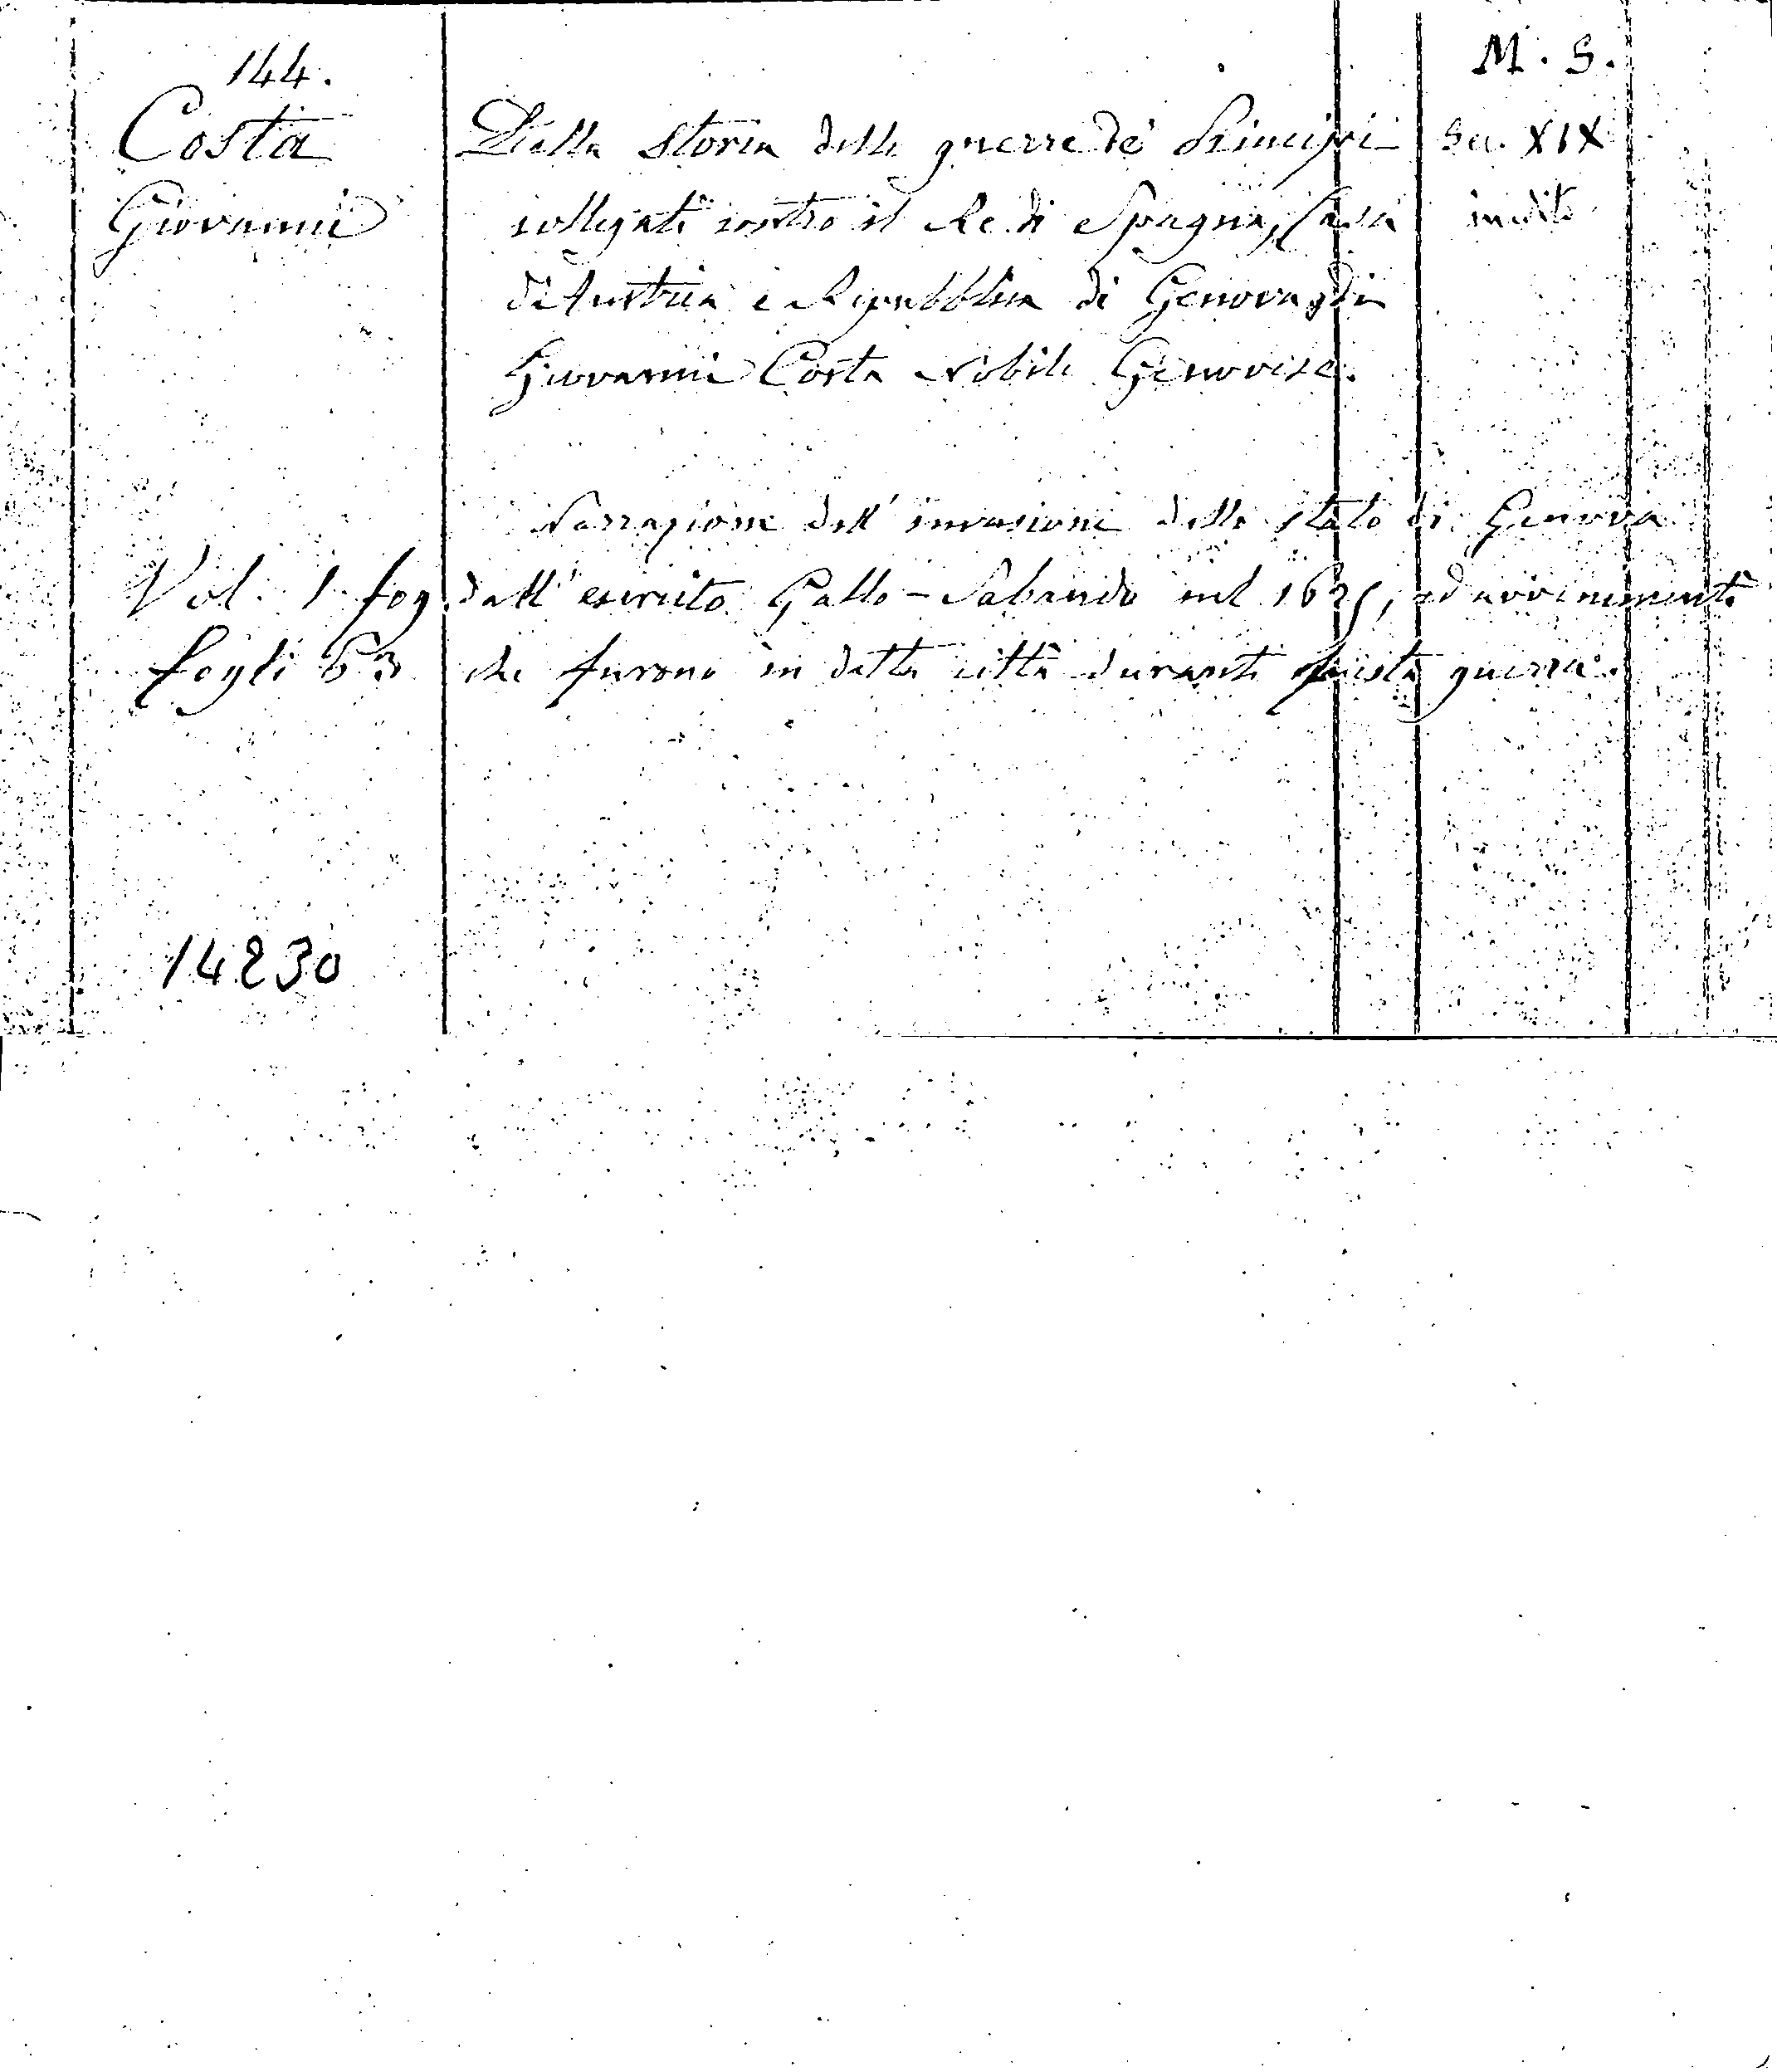 144.
M. S.
Costa
Della Storia delle guerre de' Principi
Sec. XIX
Giovanni
collegati contro il Re di Spagna, Casa
inedito
di Austria e Repubblica di Genova, di
Giovanni Costa Nobile Genovese.
Narrazione dell' invasione dello stato di Genova
Vol. 1. fog.
dall' esercito Gallo-Sabaudo nel 1625, ed avvenimenti
fogli 63
che furono in detta città durante questa guerra.
14230